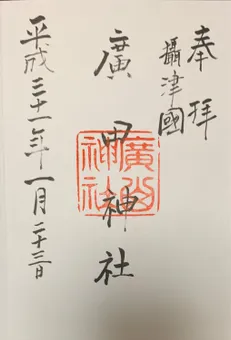 奉拝
攝津國
廣田神社
廣田
神社
平成三十一年一月二十三日